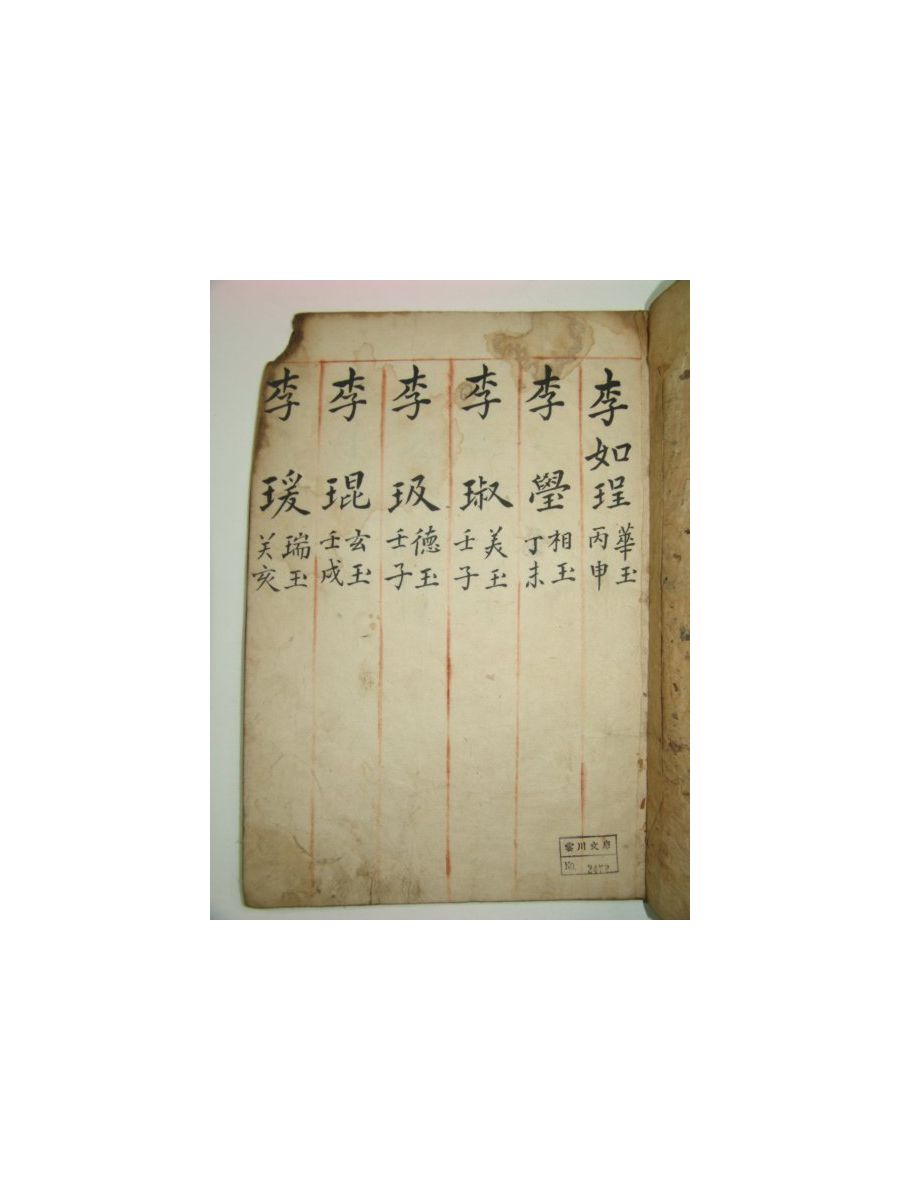 李如珵 華玉 丙申
李 相玉 丁未
李琡 美玉 壬子
李 德玉 壬子
李琨 玄玉 壬戌
李瑗 瑞玉 癸亥
雲川文庫
No. 2472